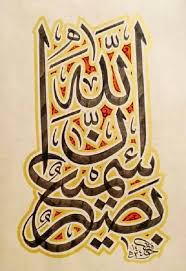 إن الله
سميع
بصير